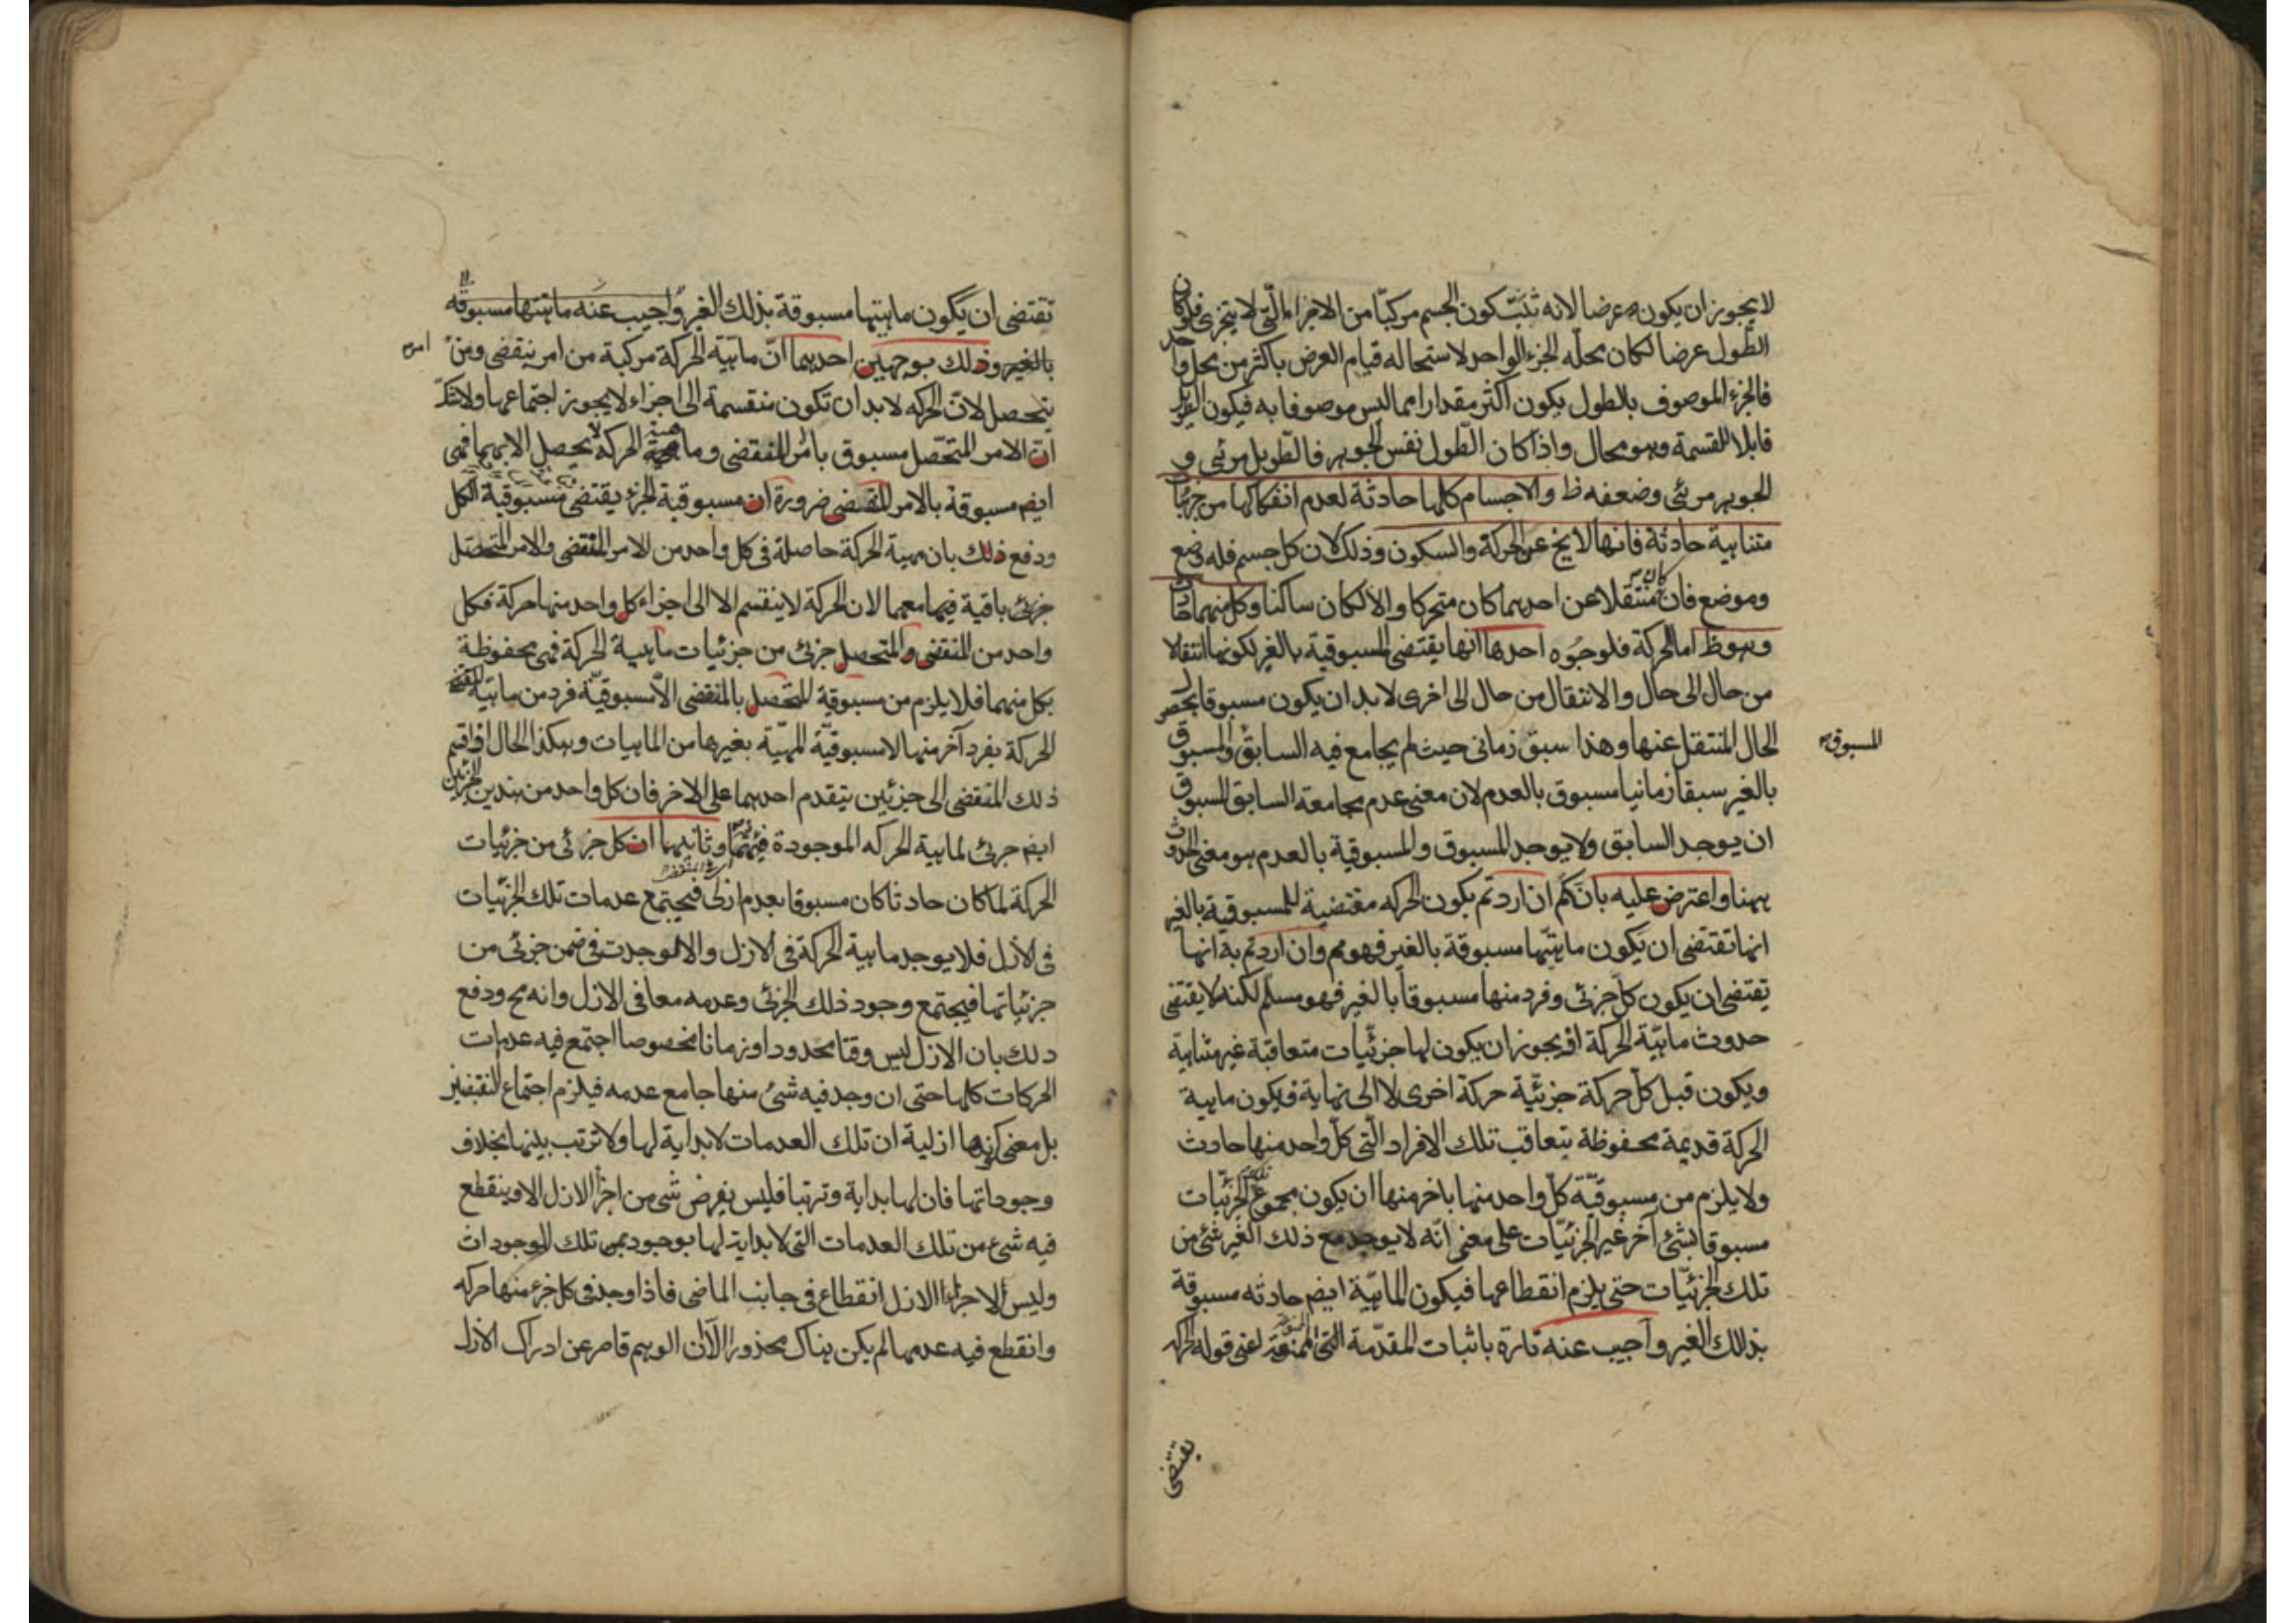 لا يجوز ان يكون عرضا لانه تثبت كون الجسم مركبا من الاجزاء التي لا يتجزى فلو كان
الطول عرضا لكان محله الجزء الواحد لاستحاله قيام العرض باكثر من محل واحد
فالجزء الموصوف بالطول يكون اكثر مقدارا مما ليس موصوفا به فيكون
قابلا للقسمة وهو محال واذا كان الطول نفس الجوهر فالطويل مرئى و
الجوهر مرئى وضعفه ظ والاجسام كلها حادثة لعدم انفكاكها من جزئيات
متناهية حادثة فانها لا يخ عن الحركة والسكون وذلك لان كل جسم فله وضع
وموضع فان كان منتقلا عن احدهما كان متحركا والا لكان ساكنا وكل منهما حادث
وهو ظ اما الحركة فلوجوه احدها انها يقتضى المسبوقية بالغير لكونها انتقالا
من حال الى حال والانتقال من حال الى اخرى لا بد ان يكون مسبوقا بحصول
الحال المنتقل عنها وهذا سبق زمانى حيث لم يجامع فيه السابق المسبوق والمسبوق
بالغير سبقا زمانيا مسبوق بالعدم لان معنى عدم مجامعة السابق المسبوق
ان يوجد السابق ولا يوجد المسبوق والمسبوقية بالعدم هو معنى الحدوث
ههنا واعترض عليه بانكم ان اردتم بكون الحركه مقتضية للمسبوقية بالغير
انها تقتضى ان يكون ماهيتها مسبوقة بالغير فهو مم وان اردتم به انها
تقتضى ان يكون كل جزئى وفرد منها مسبوقا بالغير فهو مسلم لكنه لا يقتضى
حدوث ماهية الحركة اذ يجوز ان يكون لها جزئيات متعاقبة غير متناهية
ويكون قبل كل حركة جزئية حركة اخرى لا الى نهاية فيكون ماهية
الحركة قديمة محفوظة بتعاقب تلك الافراد التى كل واحد منها حادث
ولا يلزم من مسبوقية كل واحد منها باخر منها ان يكون مجموع تلك الجزئيات
مسبوقا بشئ آخر غير الجزئيات على معنى انه لا يوجد مع ذلك الغير شئ من
تلك الجزئيات حتى يلزم انقطاعها فيكون الماهية ايضم حادثه مسبوقة
بذلك الغير واجيب عنه تارة باثبات المقدمة التى الممنوعة اعنى قوله الحركة
يقتضى
تقتضى ان يكون ماهيتها مسبوقة بذلك الغير واجيب عنه ماهيتها مسبوقه
بالغير وذلك بوجهين احدهما ان ماهية الحركة مركبة من امر ينقضى ومن امر
يتحصل لان الحركه لا بد ان تكون منقسمة الى اجزاء لا يجوز اجتماعها ولا شك
ان الامر المتحصل مسبوق بامر المنقضى وماهية الحركة لا يحصل الا بهما فهى
ايضم مسبوقة بالامر المنقضى ضرورة ان مسبوقية الجزء يقتضى مسبوقية الكل
ودفع ذلك بان مهية الحركة حاصلة فى كل واحد من الامر المنقضى والامر المتحصل
جزئى باقية فيهما معهما لان الحركة لا ينقسم الا الى اجزاء كل واحد منها حركة فكل
واحد من المنقضى والمتحصل جزئى من جزئيات ماهية الحركة فهى محفوظة
بكل منهما فلا يلزم من مسبوقية المتحصل بالمنقضى الا مسبوقية فرد من ماهية
الحركة بفرد آخر منها لا مسبوقية المهية بغيرها من الماهيات وهكذا الحال اذا قيم
ذلك المنقضى الى جزئين يتقدم احدهما على الاخر فان كل واحد من هذين الجزئين
ايضم جزئى لماهية الحركه الموجودة فيهما وثانيهما ان كل جزئى من جزئيات
الحركة لما كان حادثا كان مسبوقا بعدم ازلى فيجتمع عدمات تلك الجزئيات
فى الازل فلا يوجد ماهية الحركة فى الازل والا لموجدت فى ضمن جزئى من
جزئياتها فيجتمع وجود ذلك الجزئى وعدمه معا فى الازل وانه مح ودفع
ذلك بان الازل ليس وقتا محدودا وزمانا مخصوصا اجتمع فيه عدمات
الحركات كلها حتى ان وجد فيه شئ منها جامع عدمه فيلزم اجتماع النقيضين
بل معنى كونها ازلية ان تلك العدمات لا بداية لها ولا ترتب بينها بخلاف
وجوداتها فان لها بداية وترتبا فليس يفرض شئ من اجزاء الازل الا وينقطع
فيه شئ من تلك العدمات التى لا بداية لها بوجود من تلك الموجودات
وليس لاجزاء الازل انقطاع فى جانب الماضى فاذا وجد فى كل جزء منها حركه
وانقطع فيه عدمها لم يكن هناك محذور الا ان الوهم قاصر عن ادراك الازل